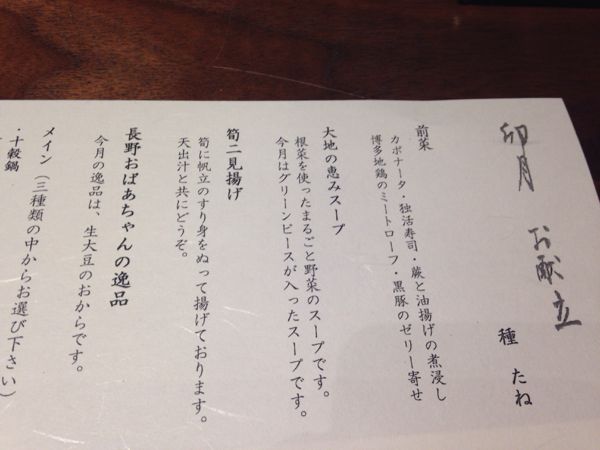 卯月　お献立
種　たね
前菜
カポナータ・独活寿司・蕨と油揚げの煮浸し
博多地鶏のミートローフ・黒豚のゼリー寄せ
大地の恵みスープ
根菜を使ったまるごと野菜のスープです。
今月はグリーンピースが入ったスープです。
筍二見揚げ
筍に帆立のすり身をぬって揚げております。
天出汁と共にどうぞ。
長野おばあちゃんの逸品
今月の逸品は、生大豆のおからです。
メイン（三種類の中からお選び下さい）
・十穀鍋